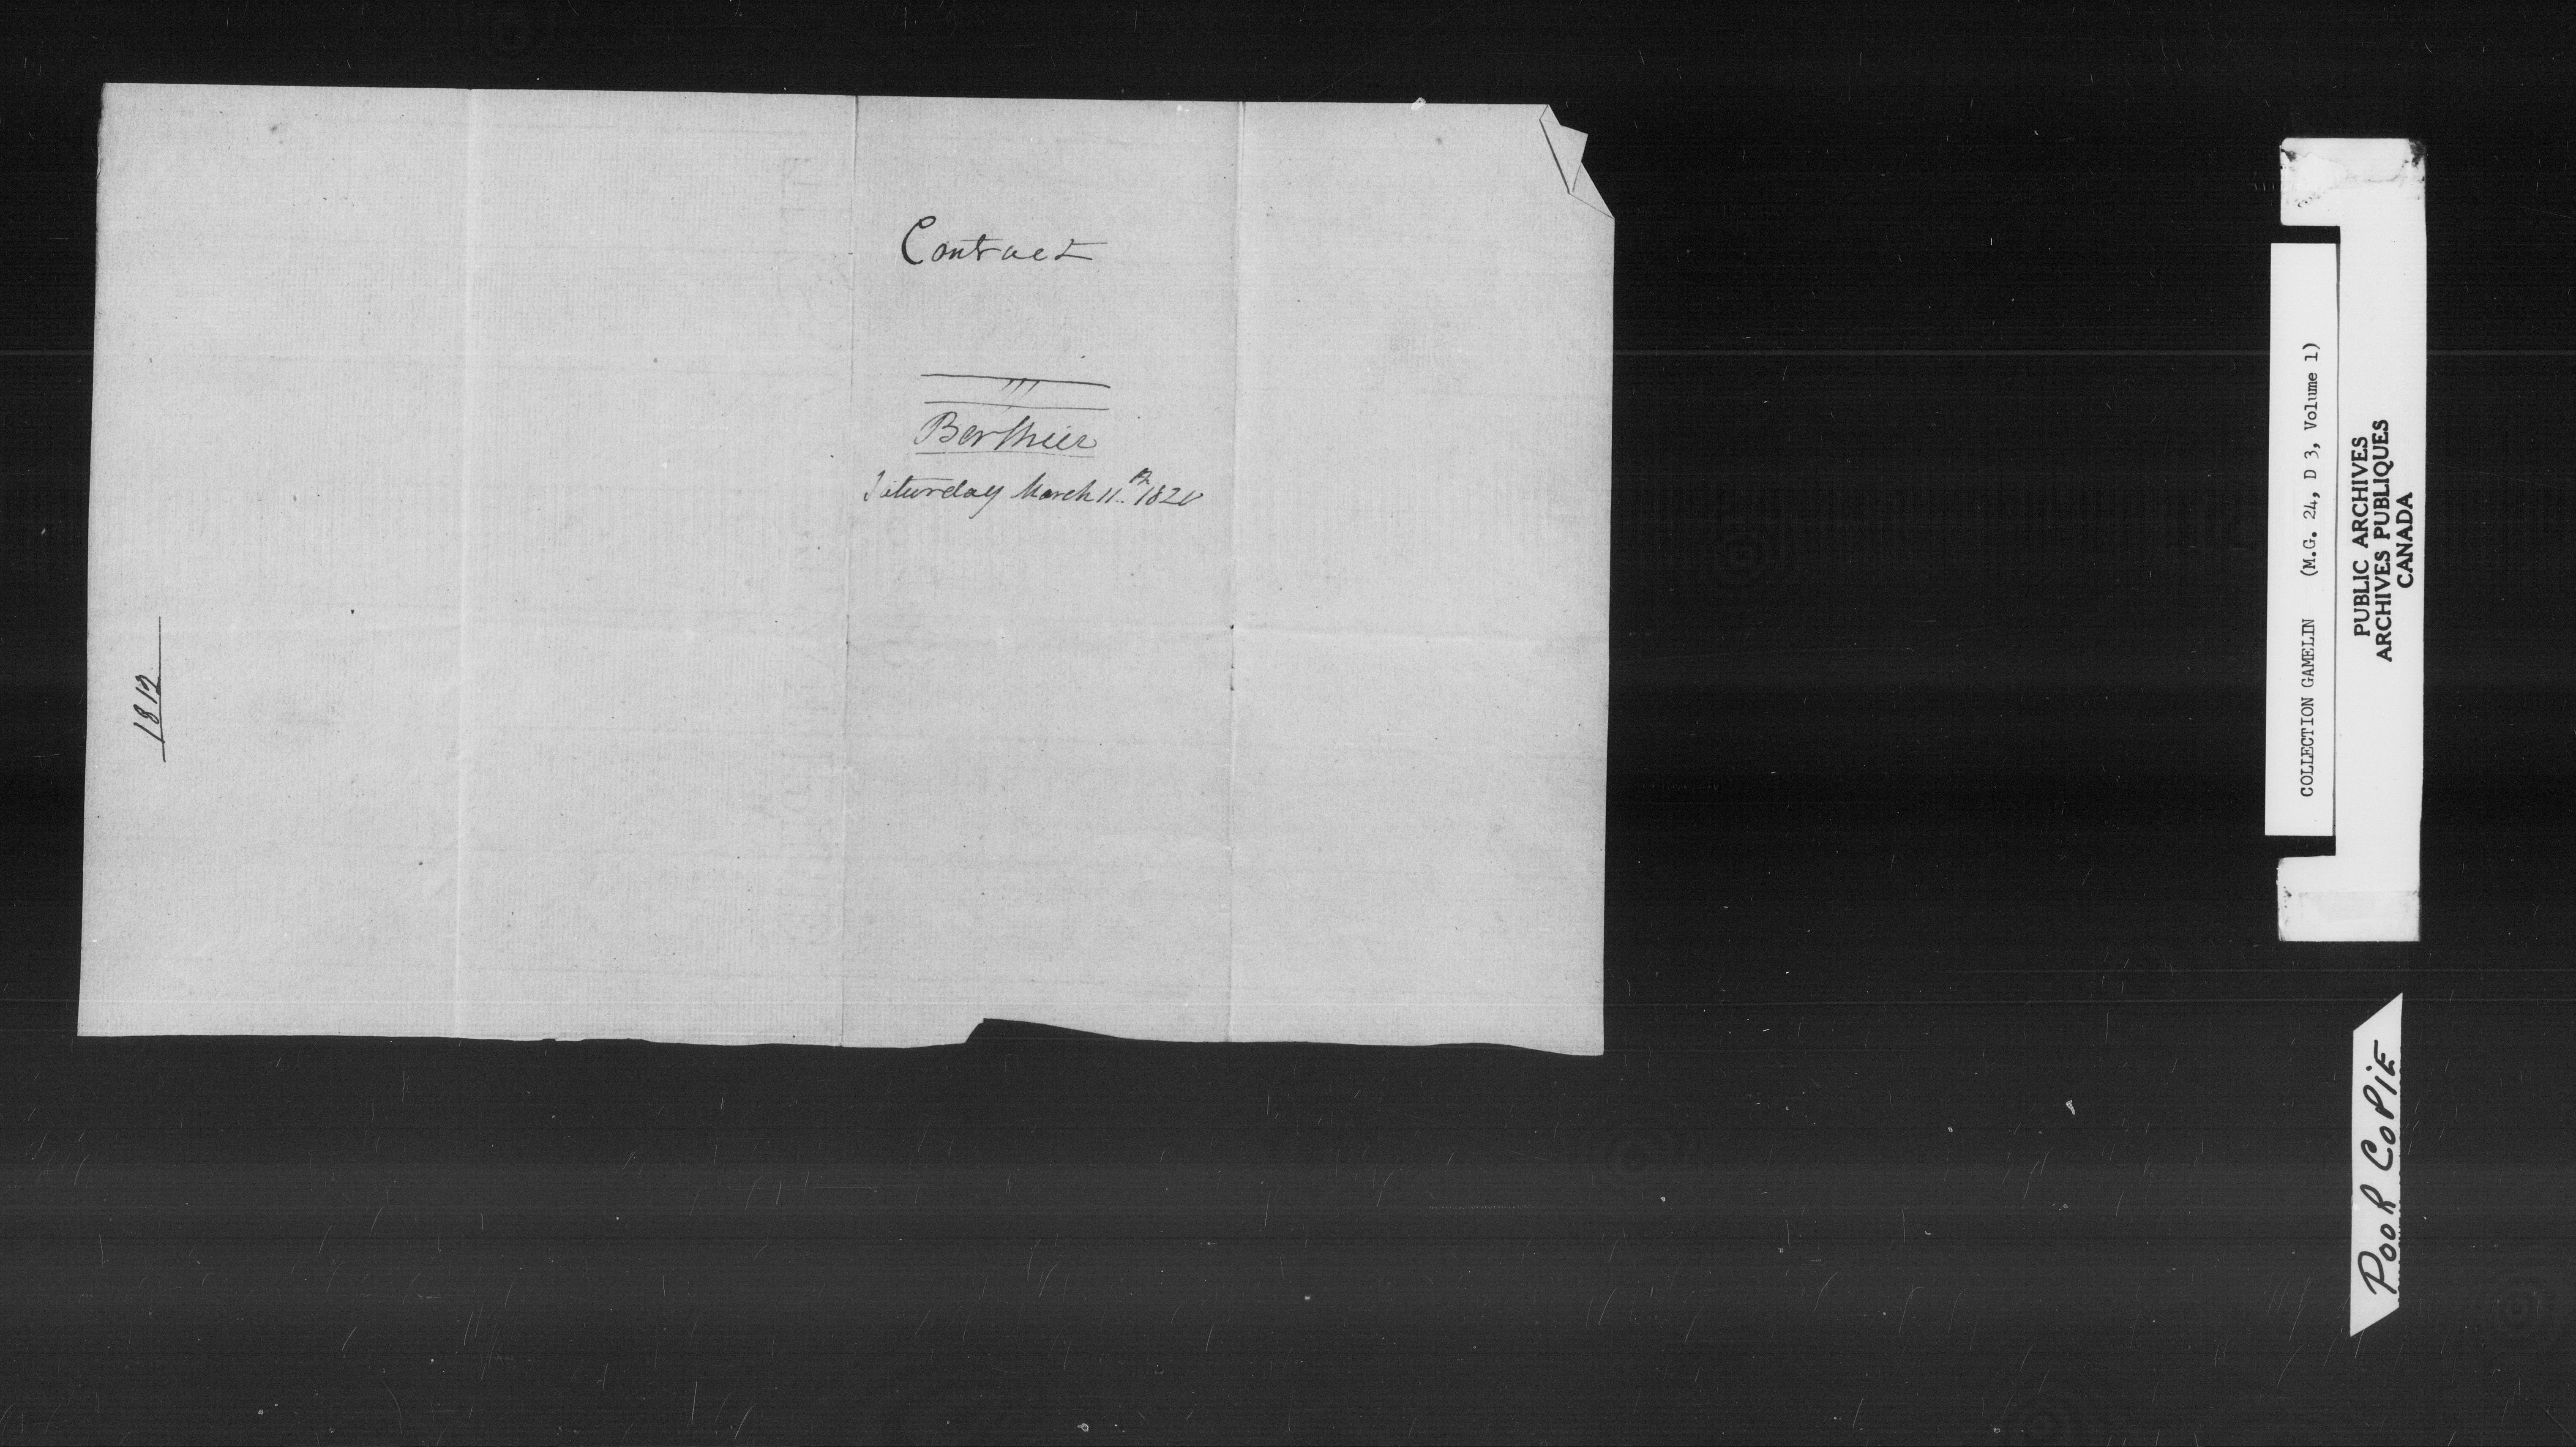 Contract
Berthier
Saturday March 11th 1820
1812
COLLECTION GAMELIN (M.G. 24, D 3, Volume 1)
PUBLIC ARCHIVES
ARCHIVES PUBLIQUES
CANADA
POOR COPIE